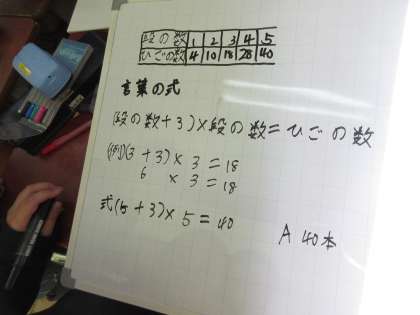 段の数 1 2 3 4 5
ひごの数 4 10 18 28 40
言葉の式
(段の数+3)×段の数=ひごの数
(例)(3+3)×3=18
6×3=18
式(5+3)×5=40
A 40本